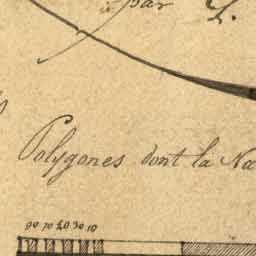 par L.
Polygones dont la Na
90 70 50 30 10